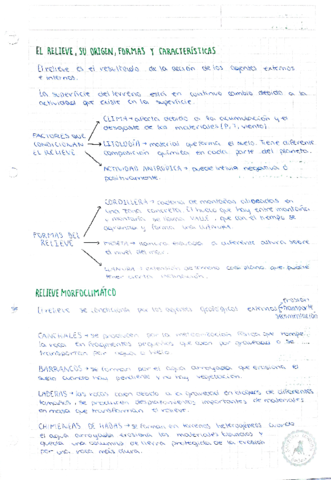 EL RELIEVE, SU ORIGEN, FORMAS Y CARACTERÍSTICAS
El relieve es el resultado de la acción de los agentes externos
e internos.
La superficie del terreno está en continuo cambio debido a la
actividad que existe en la superficie.
FACTORES QUE
CONDICIONAN
EL RELIEVE
CLIMA → afecta debido a la acumulación y el
desgaste de los materiales (P, T, viento)
LITOLOGÍA → material que forma el suelo. Tiene diferente
composición química en cada parte del planeta.
ACTIVIDAD ANTRÓPICA → puede influir negativa o
positivamente.
FORMAS DEL
RELIEVE
CORDILLERA → cadena de montañas alineadas en
una zona concreta. El hueco que hay entre montaña
y montaña se llama valle, que con el tiempo se
y forma una
MESETA → llanura a diferente altura sobre
el nivel del mar.
LLANURA → extensión de terreno casi plano que puede
tener cierta
RELIEVE MORFOCLIMÁTICO
El relieve se condiciona por los agentes geológicos externos
erosión
transporte
sedimentación
CANCHALES → se producen por la meteorización física que rompe
la roca en fragmentos pequeños que caen por gravedad o se
transportan por agua o hielo.
BARRANCOS → se forman por el agua arroyada que erosiona el
suelo cuando hay pendiente y no hay vegetación.
LADERAS → las rocas caen debido a la gravedad en bloques de diferentes
tamaños y se producen desplazamientos importantes de materiales
en masa que transforman el relieve.
CHIMENEAS DE HADAS → se forman en terrenos heterogéneos cuando
el agua arroyada erosiona los materiales blandos
queda una columna de tierra protegida de la erosión
por una roca más dura.